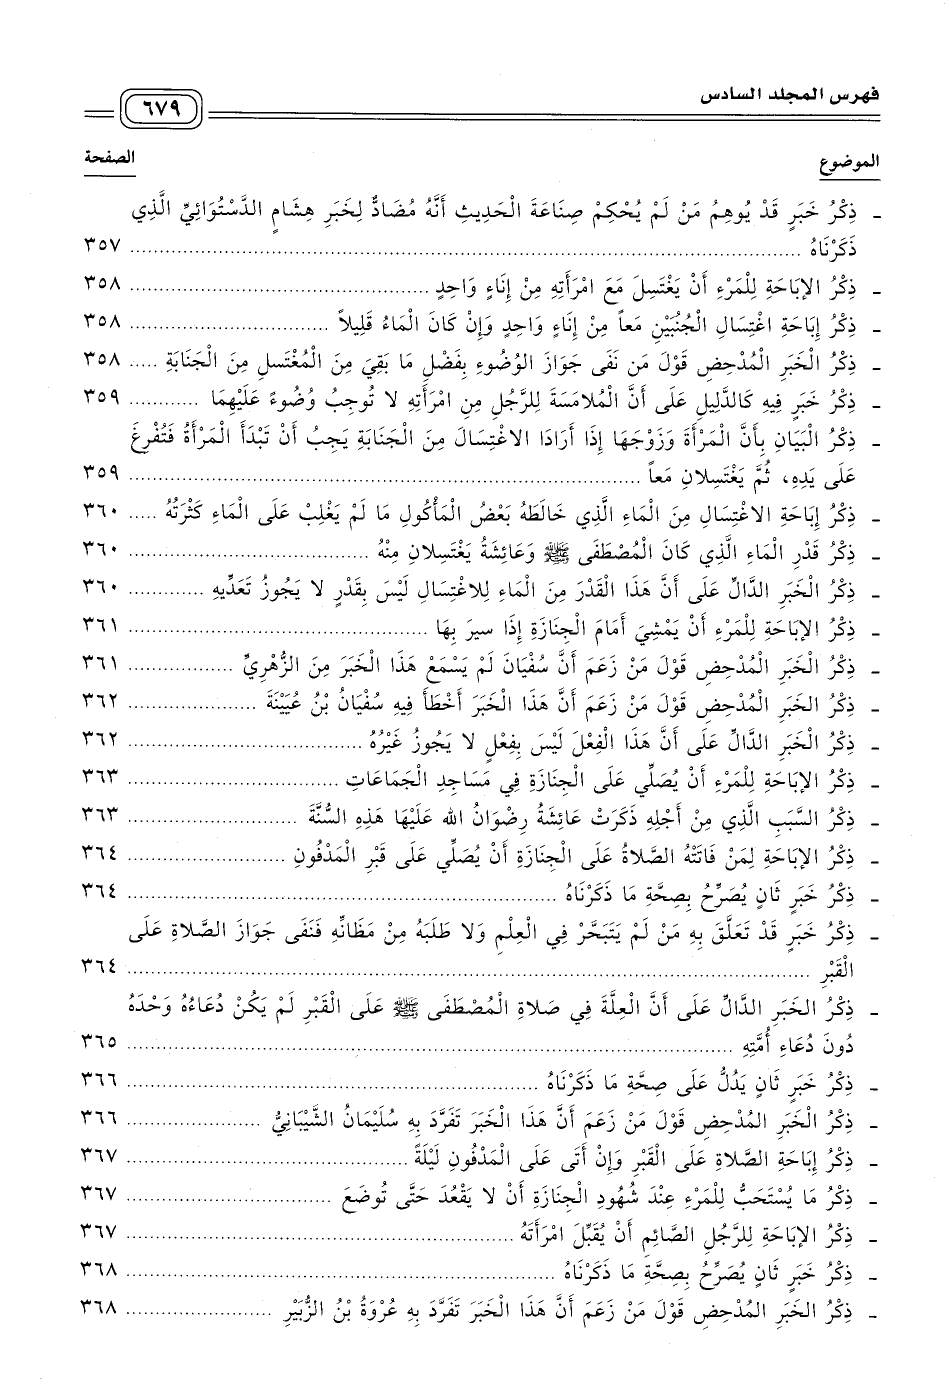 فهرس المجلد السادس
٦٧٩
الموضوع الصفحة
- ذِكْرُ خَبَرٍ قَدْ يُوهِمُ مَنْ لَمْ يُحْكِمْ صِنَاعَةَ الْحَدِيثِ أَنَّهُ مُضَادٌّ لِخَبَرِ هِشَامٍ الدَّسْتُوَائِيِّ الَّذِي
ذَكَرْنَاهُ ........ ٣٥٧
- ذِكْرُ الإِبَاحَةِ لِلْمَرْءِ أَنْ يَغْتَسِلَ مَعَ امْرَأَتِهِ مِنْ إِنَاءٍ وَاحِدٍ ........ ٣٥٨
- ذِكْرُ إِبَاحَةِ اغْتِسَالِ الْجُنُبَيْنِ مَعاً مِنْ إِنَاءٍ وَاحِدٍ وَإِنْ كَانَ الْمَاءُ قَلِيلاً ........ ٣٥٨
- ذِكْرُ الْخَبَرِ الْمُدْحِضِ قَوْلَ مَن نَفَى جَوَازَ الوُضُوءِ بِفَضْلِ مَا بَقِيَ مِنَ الْمُغْتَسِلِ مِنَ الْجَنَابَةِ ..... ٣٥٨
- ذِكْرُ خَبَرٍ فِيهِ كَالدَّلِيلِ عَلَى أَنَّ الْمُلامَسَةَ لِلرَّجُلِ مِنِ امْرَأَتِهِ لا تُوجِبُ وُضُوءً عَلَيْهِمَا ........ ٣٥٩
- ذِكْرُ الْبَيَانِ بِأَنَّ الْمَرْأَةَ وَزَوْجَهَا إِذَا أَرَادَا الاغْتِسَالَ مِنَ الْجَنَابَةِ يَجِبُ أَنْ تَبْدَأَ الْمَرْأَةُ فَتُفْرِغَ
عَلَى يَدِهِ، ثُمَّ يَغْتَسِلانِ مَعاً ........ ٣٥٩
- ذِكْرُ إِبَاحَةِ الاغْتِسَالِ مِنَ الْمَاءِ الَّذِي خَالَطَهُ بَعْضُ الْمَأْكُولِ مَا لَمْ يَغْلِبْ عَلَى الْمَاءِ كَثْرَتُهُ ..... ٣٦٠
- ذِكْرُ قَدْرِ الْمَاءِ الَّذِي كَانَ الْمُصْطَفَى ﷺ وَعَائِشَةُ يَغْتَسِلانِ مِنْهُ ........ ٣٦٠
- ذِكْرُ الْخَبَرِ الدَّالِّ عَلَى أَنَّ هَذَا الْقَدْرَ مِنَ الْمَاءِ لِلاغْتِسَالِ لَيْسَ بِقَدْرٍ لا يَجُوزُ تَعَدِّيهِ ........ ٣٦٠
- ذِكْرُ الإِبَاحَةِ لِلْمَرْءِ أَنْ يَمْشِيَ أَمَامَ الْجِنَازَةِ إِذَا سِيرَ بِهَا ........ ٣٦١
- ذِكْرُ الْخَبَرِ الْمُدْحِضِ قَوْلَ مَنْ زَعَمَ أَنَّ سُفْيَانَ لَمْ يَسْمَعْ هَذَا الْخَبَرَ مِنَ الزُّهْرِيِّ ........ ٣٦١
- ذِكْرُ الْخَبَرِ الْمُدْحِضِ قَوْلَ مَنْ زَعَمَ أَنَّ هَذَا الْخَبَرَ أَخْطَأَ فِيهِ سُفْيَانُ بْنُ عُيَيْنَةَ ........ ٣٦٢
- ذِكْرُ الْخَبَرِ الدَّالِّ عَلَى أَنَّ هَذَا الْفِعْلَ لَيْسَ بِفِعْلٍ لا يَجُوزُ غَيْرُهُ ........ ٣٦٢
- ذِكْرُ الإِبَاحَةِ لِلْمَرْءِ أَنْ يُصَلِّيَ عَلَى الْجِنَازَةِ فِي مَسَاجِدِ الْجَمَاعَاتِ ........ ٣٦٣
- ذِكْرُ السَّبَبِ الَّذِي مِنْ أَجْلِهِ ذَكَرَتْ عَائِشَةُ رِضْوَانُ الله عَلَيْهَا هَذِهِ السُّنَّةَ ........ ٣٦٣
- ذِكْرُ الإِبَاحَةِ لِمَنْ فَاتَتْهُ الصَّلاةُ عَلَى الْجِنَازَةِ أَنْ يُصَلِّيَ عَلَى قَبْرِ الْمَدْفُونِ ........ ٣٦٤
- ذِكْرُ خَبَرٍ ثَانٍ يُصَرِّحُ بِصِحَّةِ مَا ذَكَرْنَاهُ ........ ٣٦٤
- ذِكْرُ خَبَرٍ قَدْ تَعَلَّقَ بِهِ مَنْ لَمْ يَتَبَحَّرْ فِي الْعِلْمِ وَلا طَلَبَهُ مِنْ مَظَانِّهِ فَنَفَى جَوَازَ الصَّلاةِ عَلَى
الْقَبْرِ ........ ٣٦٤
- ذِكْرُ الْخَبَرِ الدَّالِّ عَلَى أَنَّ الْعِلَّةَ فِي صَلاةِ الْمُصْطَفَى ﷺ عَلَى الْقَبْرِ لَمْ يَكُنْ دُعَاءُهُ وَحْدَهُ
دُونَ دُعَاءِ أُمَّتِهِ ........ ٣٦٥
- ذِكْرُ خَبَرٍ ثَانٍ يَدُلُّ عَلَى صِحَّةِ مَا ذَكَرْنَاهُ ........ ٣٦٦
- ذِكْرُ الْخَبَرِ الْمُدْحِضِ قَوْلَ مَنْ زَعَمَ أَنَّ هَذَا الْخَبَرَ تَفَرَّدَ بِهِ سُلَيْمَانُ الشَّيْبَانِيُّ ........ ٣٦٦
- ذِكْرُ إِبَاحَةِ الصَّلاةِ عَلَى الْقَبْرِ وَإِنْ أَتَى عَلَى الْمَدْفُونِ لَيْلَةٌ ........ ٣٦٧
- ذِكْرُ مَا يُسْتَحَبُّ لِلْمَرْءِ عِنْدَ شُهُودِ الْجِنَازَةِ أَنْ لا يَقْعُدَ حَتَّى تُوضَعَ ........ ٣٦٧
- ذِكْرُ الإِبَاحَةِ لِلرَّجُلِ الصَّائِمِ أَنْ يُقَبِّلَ امْرَأَتَهُ ........ ٣٦٧
- ذِكْرُ خَبَرٍ ثَانٍ يُصَرِّحُ بِصِحَّةِ مَا ذَكَرْنَاهُ ........ ٣٦٨
- ذِكْرُ الْخَبَرِ الْمُدْحِضِ قَوْلَ مَنْ زَعَمَ أَنَّ هَذَا الْخَبَرَ تَفَرَّدَ بِهِ عُرْوَةُ بْنُ الزُّبَيْرِ ........ ٣٦٨